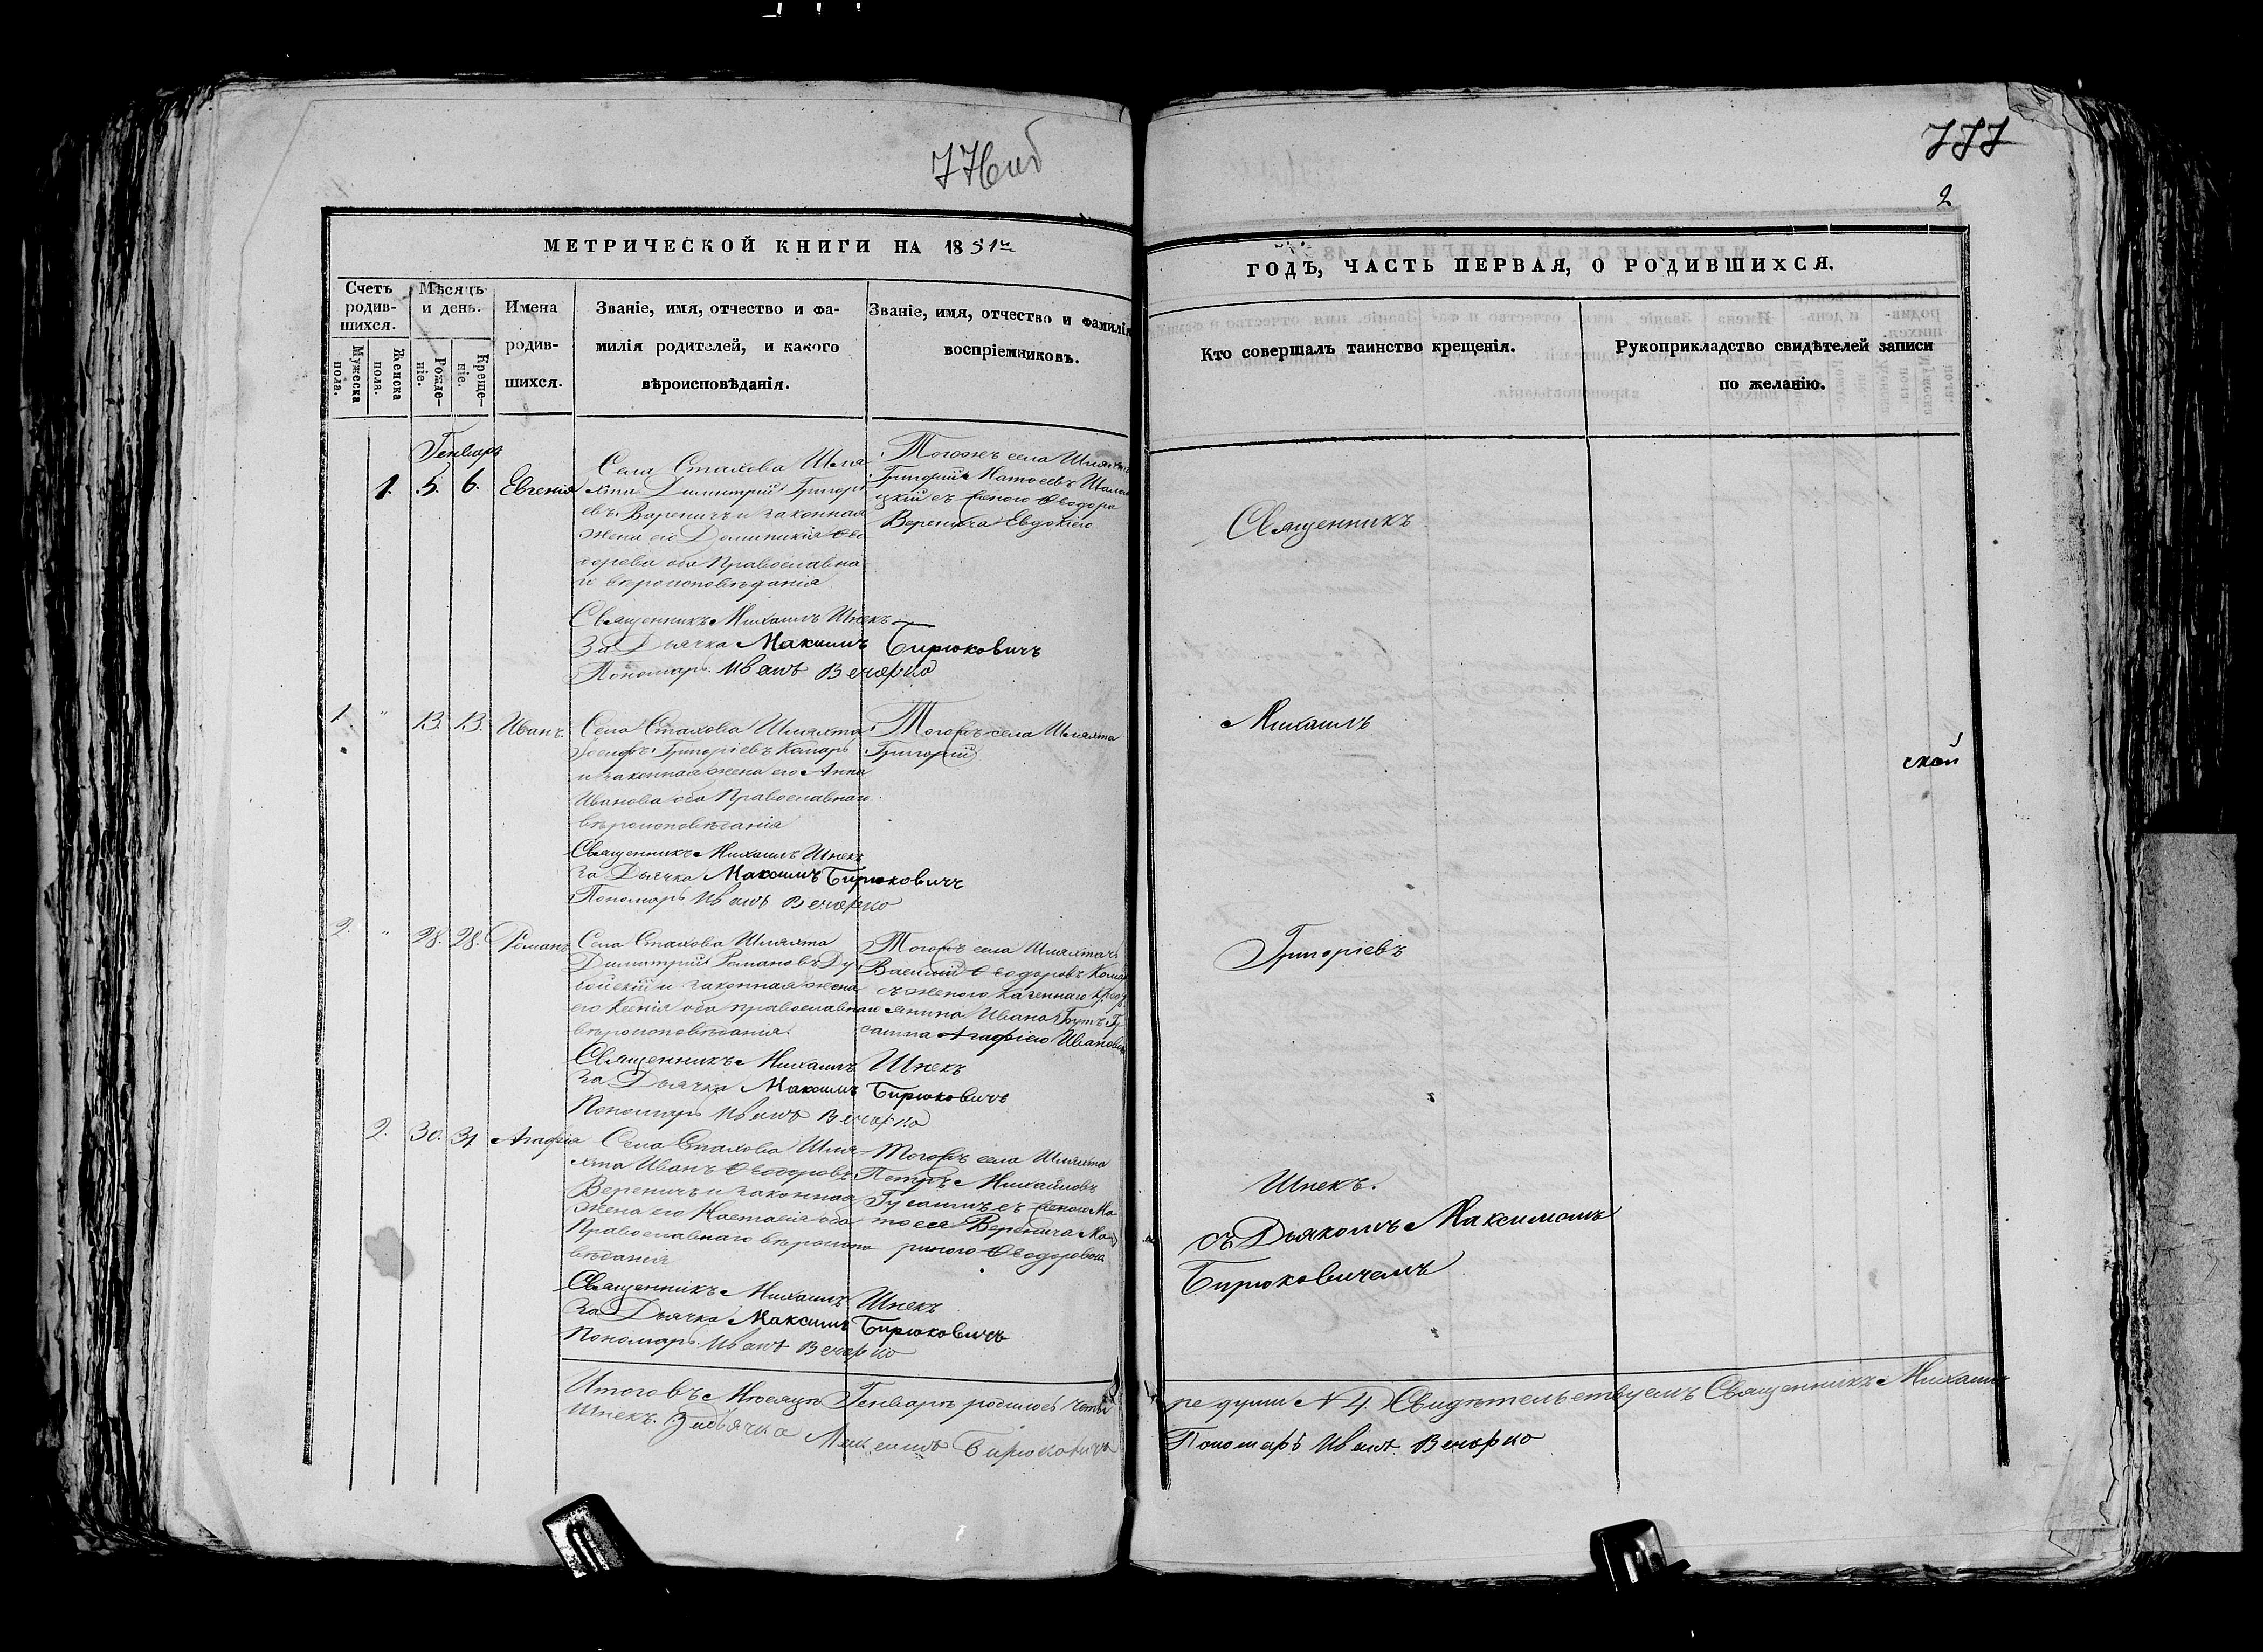 777
2
МЕТРИЧЕСКОЙ КНИГИ НА 1851
ГОДЪ, ЧАСТЬ ПЕРВАЯ, О РОДИВШИХСЯ.
Счетъ родив-шихся.
Мужеска пола.
Женска пола.
Мѣсяцъ и день.
Рожде-ніе.
Креще-ніе.
Имена
родив-
шихся.
Званіе, имя, отчество и фа-
милія родителей, и какого
вѣроисповѣданія.
Званіе, имя, отчество и фамилія
воспріемниковъ.
Кто совершалъ таинство крещенія.
Рукоприкладство свидѣтелей записи
по желанію.
Генварь
1. 5. 6. Евгенія
Села Стахова Шля-
хта Димитрій Григорі
евъ Вереничъ и законная
жена его Доминикія Ѳео
дорова оба Православна
го вѣроисповѣданія
Тогожъ села Шляхта
Григорій Матѳеевъ
цкій съ женою Ѳеодора
Веренича Евдокіею
Священникъ Михаилъ Шнекъ
За Дьячка Максимъ Бирюковичъ
Пономарь Иванъ Вечерко
1 " 13. 13. Иванъ
Села Стахова Шляхта
Іосифъ Григоріевъ Комаръ
и законная жена его Анна
Иванова оба Православнаго
вѣроисповѣданія
Тогожъ села Шляхта
Григорій
Священникъ Михаилъ Шнекъ
за Дьячка Максимъ Бирюковичъ
Пономарь Иванъ Вечерко
2. " 28. 28. Романъ
Села Стахова Шляхта
Димитрій Романовъ
и законная жена
его Ксенія оба православнаго
вѣроисповѣданія.
Тогожъ села Шляхтичъ
Василій Ѳеодоровъ Комаръ
съ женою казеннаго крест
янина Ивана
Агафіею Ивановою
Священникъ Михаилъ Шнекъ
за Дьячка Максимъ Бирюковичъ
Пономарь Иванъ Вечерко
2. 30. 31 Агафія
Села Стахова Шля-
хта Иванъ Ѳеодоровъ
Вереничъ и законная
жена его Настасія оба
Православнаго вѣроиспо
вѣданія
Тогожъ села Шляхта
Петръ Михайловъ
Гусаимъ съ женою Ма
тѳея Веренича Ма
риною Ѳеодоровою
Священникъ Михаилъ Шнекъ
за Дьячка Максимъ Бирюковичъ
Пономарь Иванъ Вечерко
Итого въ Мѣсяцѣ Генварѣ родилось четы
Шнекъ. За дьячка Максимъ Бирюковичъ
Священникъ
Михаилъ
ской
Григоріевъ
Шнекъ.
съ Дьякомъ Максимомъ
Бирюковичемъ
ре души № 4. Свидѣтельствуемъ Священникъ Михаилъ
Пономарь Иванъ Вечорко